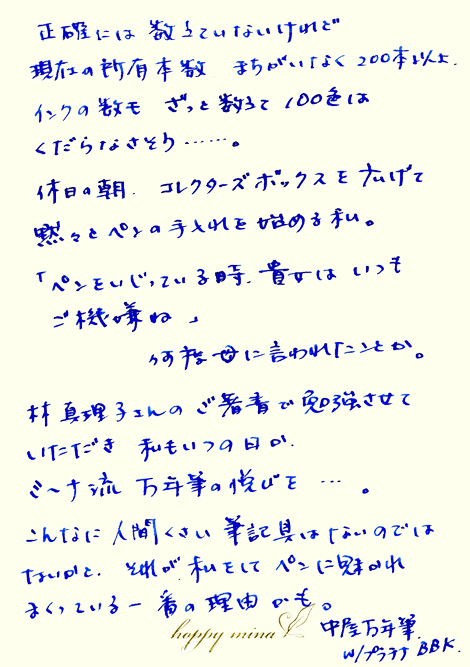 正確には 数えていないけれど
現在の所有本数 まちがいなく 200本以上.
インクの数も ざっと数えて 100色は
くだらなさそう……。
休日の朝. コレクターズボックスを広げて
黙々とペンの手入れを始める私。
「ペンをいじっている時、貴女は いつも
ご機嫌ね」
何度母に言われたことか。
林真理子さんの ご著書で勉強させて
いただき 私もいつの日か.
ミーナ流 万年筆の悦びを …。
こんなに 人間くさい 筆記具はないのでは
ないかと. それが 私をして ペンに魅かれ
まくっている一番の理由かも。
happy mina
中屋万年筆.
w/プラチナ BBK.